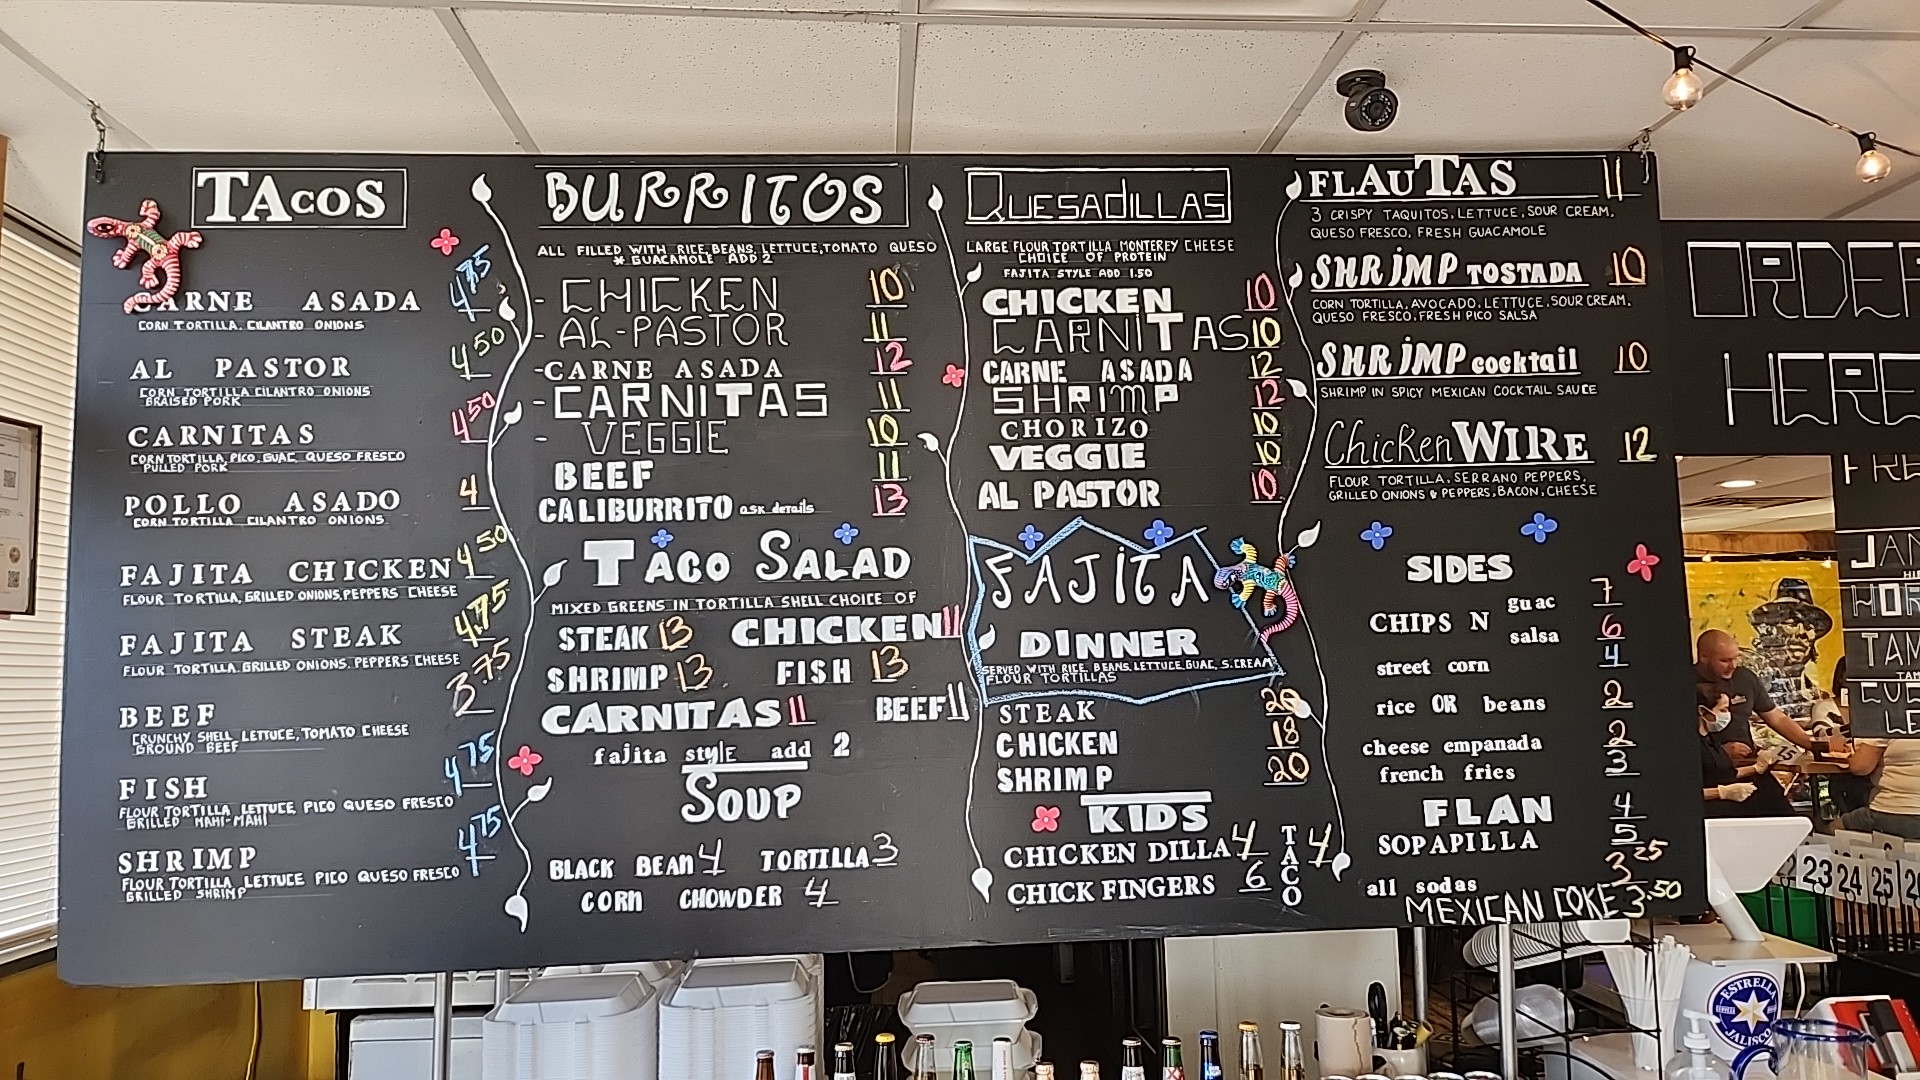 TACOS
CARNE ASADA 4.75
CORN TORTILLA, CILANTRO ONIONS
AL PASTOR 4.50
CORN TORTILLA CILANTRO ONIONS
BRAISED PORK
CARNITAS 4.50
CORN TORTILLA, PICO, GUAC, QUESO FRESCO
PULLED PORK
POLLO ASADO 4
CORN TORTILLA CILANTRO ONIONS
FAJITA CHICKEN 4.50
FLOUR TORTILLA, GRILLED ONIONS, PEPPERS CHEESE
FAJITA STEAK 4.75
FLOUR TORTILLA, GRILLED ONIONS, PEPPERS CHEESE
BEEF 3.75
CRUNCHY SHELL LETTUCE, TOMATO CHEESE
GROUND BEEF
FISH 4.75
FLOUR TORTILLA, LETTUCE, PICO QUESO FRESCO
GRILLED MAHI-MAHI
SHRIMP 4.75
FLOUR TORTILLA LETTUCE PICO QUESO FRESCO
GRILLED SHRIMP
BURRITOS
ALL FILLED WITH RICE, BEANS, LETTUCE, TOMATO QUESO
* GUACAMOLE ADD 2
- CHICKEN 10
- AL-PASTOR 11
- CARNE ASADA 12
- CARNITAS 11
- VEGGIE 10
BEEF 11
CALIBURRITO ask details 13
TACO SALAD
MIXED GREENS IN TORTILLA SHELL CHOICE OF
STEAK 13 CHICKEN 11
SHRIMP 13 FISH 13
CARNITAS 11 BEEF 11
fajita style add 2
SOUP
BLACK BEAN 4 TORTILLA 3
CORN CHOWDER 4
QUESADILLAS
LARGE FLOUR TORTILLA MONTEREY CHEESE
CHOICE OF PROTEIN
FAJITA STYLE ADD 1.50
CHICKEN 10
CARNITAS 10
CARNE ASADA 12
SHRIMP 12
CHORIZO 10
VEGGIE 10
AL PASTOR 10
FAJITA
DINNER
SERVED WITH RICE, BEANS, LETTUCE, GUAC, S. CREAM
FLOUR TORTILLAS
STEAK 20
CHICKEN 18
SHRIMP 20
KIDS
CHICKEN DILLA 4
CHICK FINGERS 6
TACO 4
FLAUTAS 11
3 CRISPY TAQUITOS, LETTUCE, SOUR CREAM,
QUESO FRESCO, FRESH GUACAMOLE
SHRIMP TOSTADA 10
CORN TORTILLA, AVOCADO, LETTUCE, SOUR CREAM,
QUESO FRESCO, FRESH PICO SALSA
SHRIMP cocktail 10
SHRIMP IN SPICY MEXICAN COCKTAIL SAUCE
Chicken WIRE 12
FLOUR TORTILLA, SERRANO PEPPERS,
GRILLED ONIONS & PEPPERS, BACON, CHEESE
SIDES
CHIPS N guac 7
salsa 6
street corn 4
rice OR beans 2
cheese empanada 2
french fries 3
FLAN 4
SOPAPILLA 5
all sodas 3.25
MEXICAN COKE 3.50
ORDER
HERE
23 24 25
ESTRELLA
JALISCO